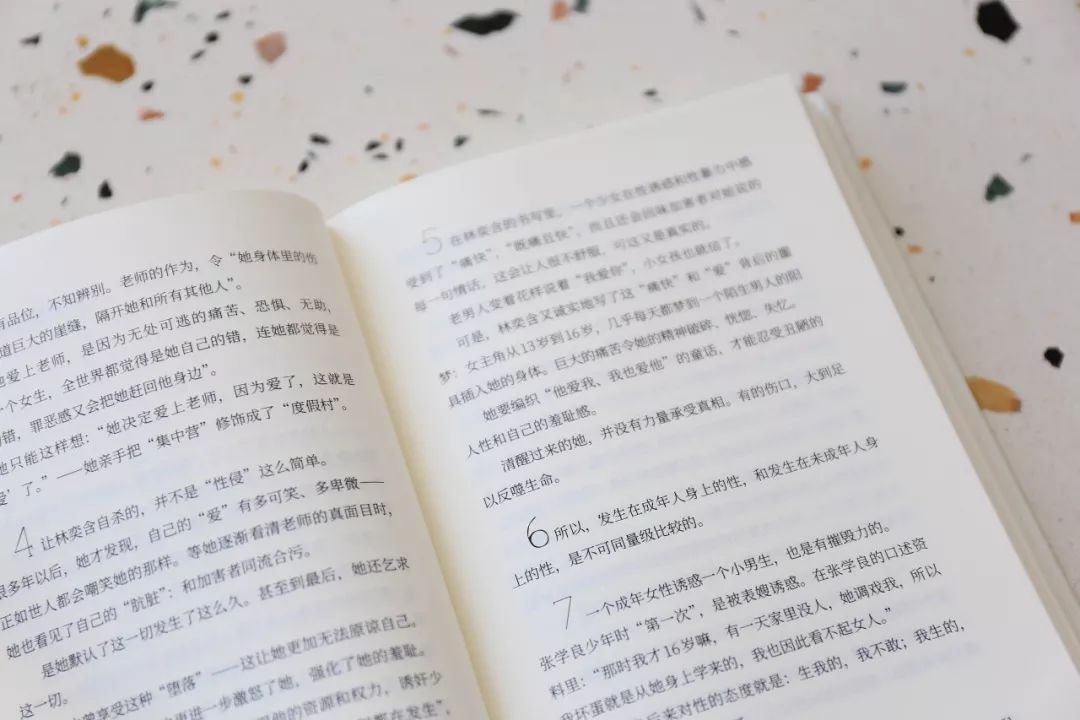 有品位，不知辨别。老师的作为，令“她身体里的伤
道巨大的崖缝，隔开她和所有其他人”。
爱上老师，是因为无处可逃的痛苦、恐惧、无助，
个女生，全世界都觉得是她自己的错，连她都觉得是
错，罪恶感又会把她赶回他身边”。
只能这样想：“她决定爱上老师，因为爱了，这就是
了。”——她亲手把“集中营”修饰成了“度假村”。
4 让林奕含自杀的，并不是“性侵”这么简单。
很多年以后，她才发现，自己的“爱”有多可笑、多卑微——
正如世人都会嘲笑她的那样。等她逐渐看清老师的真面目时，
她也看见了自己的“肮脏”：和加害者同流合污。
是她默认了这一切发生了这么久。甚至到最后，她还乞求
这一切。
享受这种“堕落”——这让她更加无法原谅自己。
更进一步激怒了她，强化了她的羞耻。
他的资源和权力，诱奸少
都在发生”，
5 在林奕含的书写里，一个少女在性诱惑和性暴力中感
受到了“痛快”，“既痛且快”，而且还会回味加害者对她说的
每一句情话，这会让人很不舒服，可这又是真实的。
老男人变着花样说着“我爱你”，小女孩也就信了。
可是，林奕含又诚实地写了这“痛快”和“爱”背后的噩
梦：女主角从13岁到16岁，几乎每天都梦到一个陌生男人的阳
具插入她的身体。巨大的痛苦令她的精神破碎、恍惚、失忆。
她要编织“他爱我、我也爱他”的童话，才能忍受丑陋的
人性和自己的羞耻感。
清醒过来的她，并没有力量承受真相。有的伤口，大到足
以反噬生命。
6 所以，发生在成年人身上的性，和发生在未成年人身
上的性，是不可同量级比较的。
7 一个成年女性诱惑一个小男生，也是有摧毁力的。
张学良少年时“第一次”，是被表嫂诱惑。在张学良的口述资
料里：“那时我才16岁嘛，有一天家里没人，她调戏我，所以
我坏蛋就是从她身上学来的，我也因此看不起女人。”
后来对性的态度就是：生我的，我不敢；我生的，